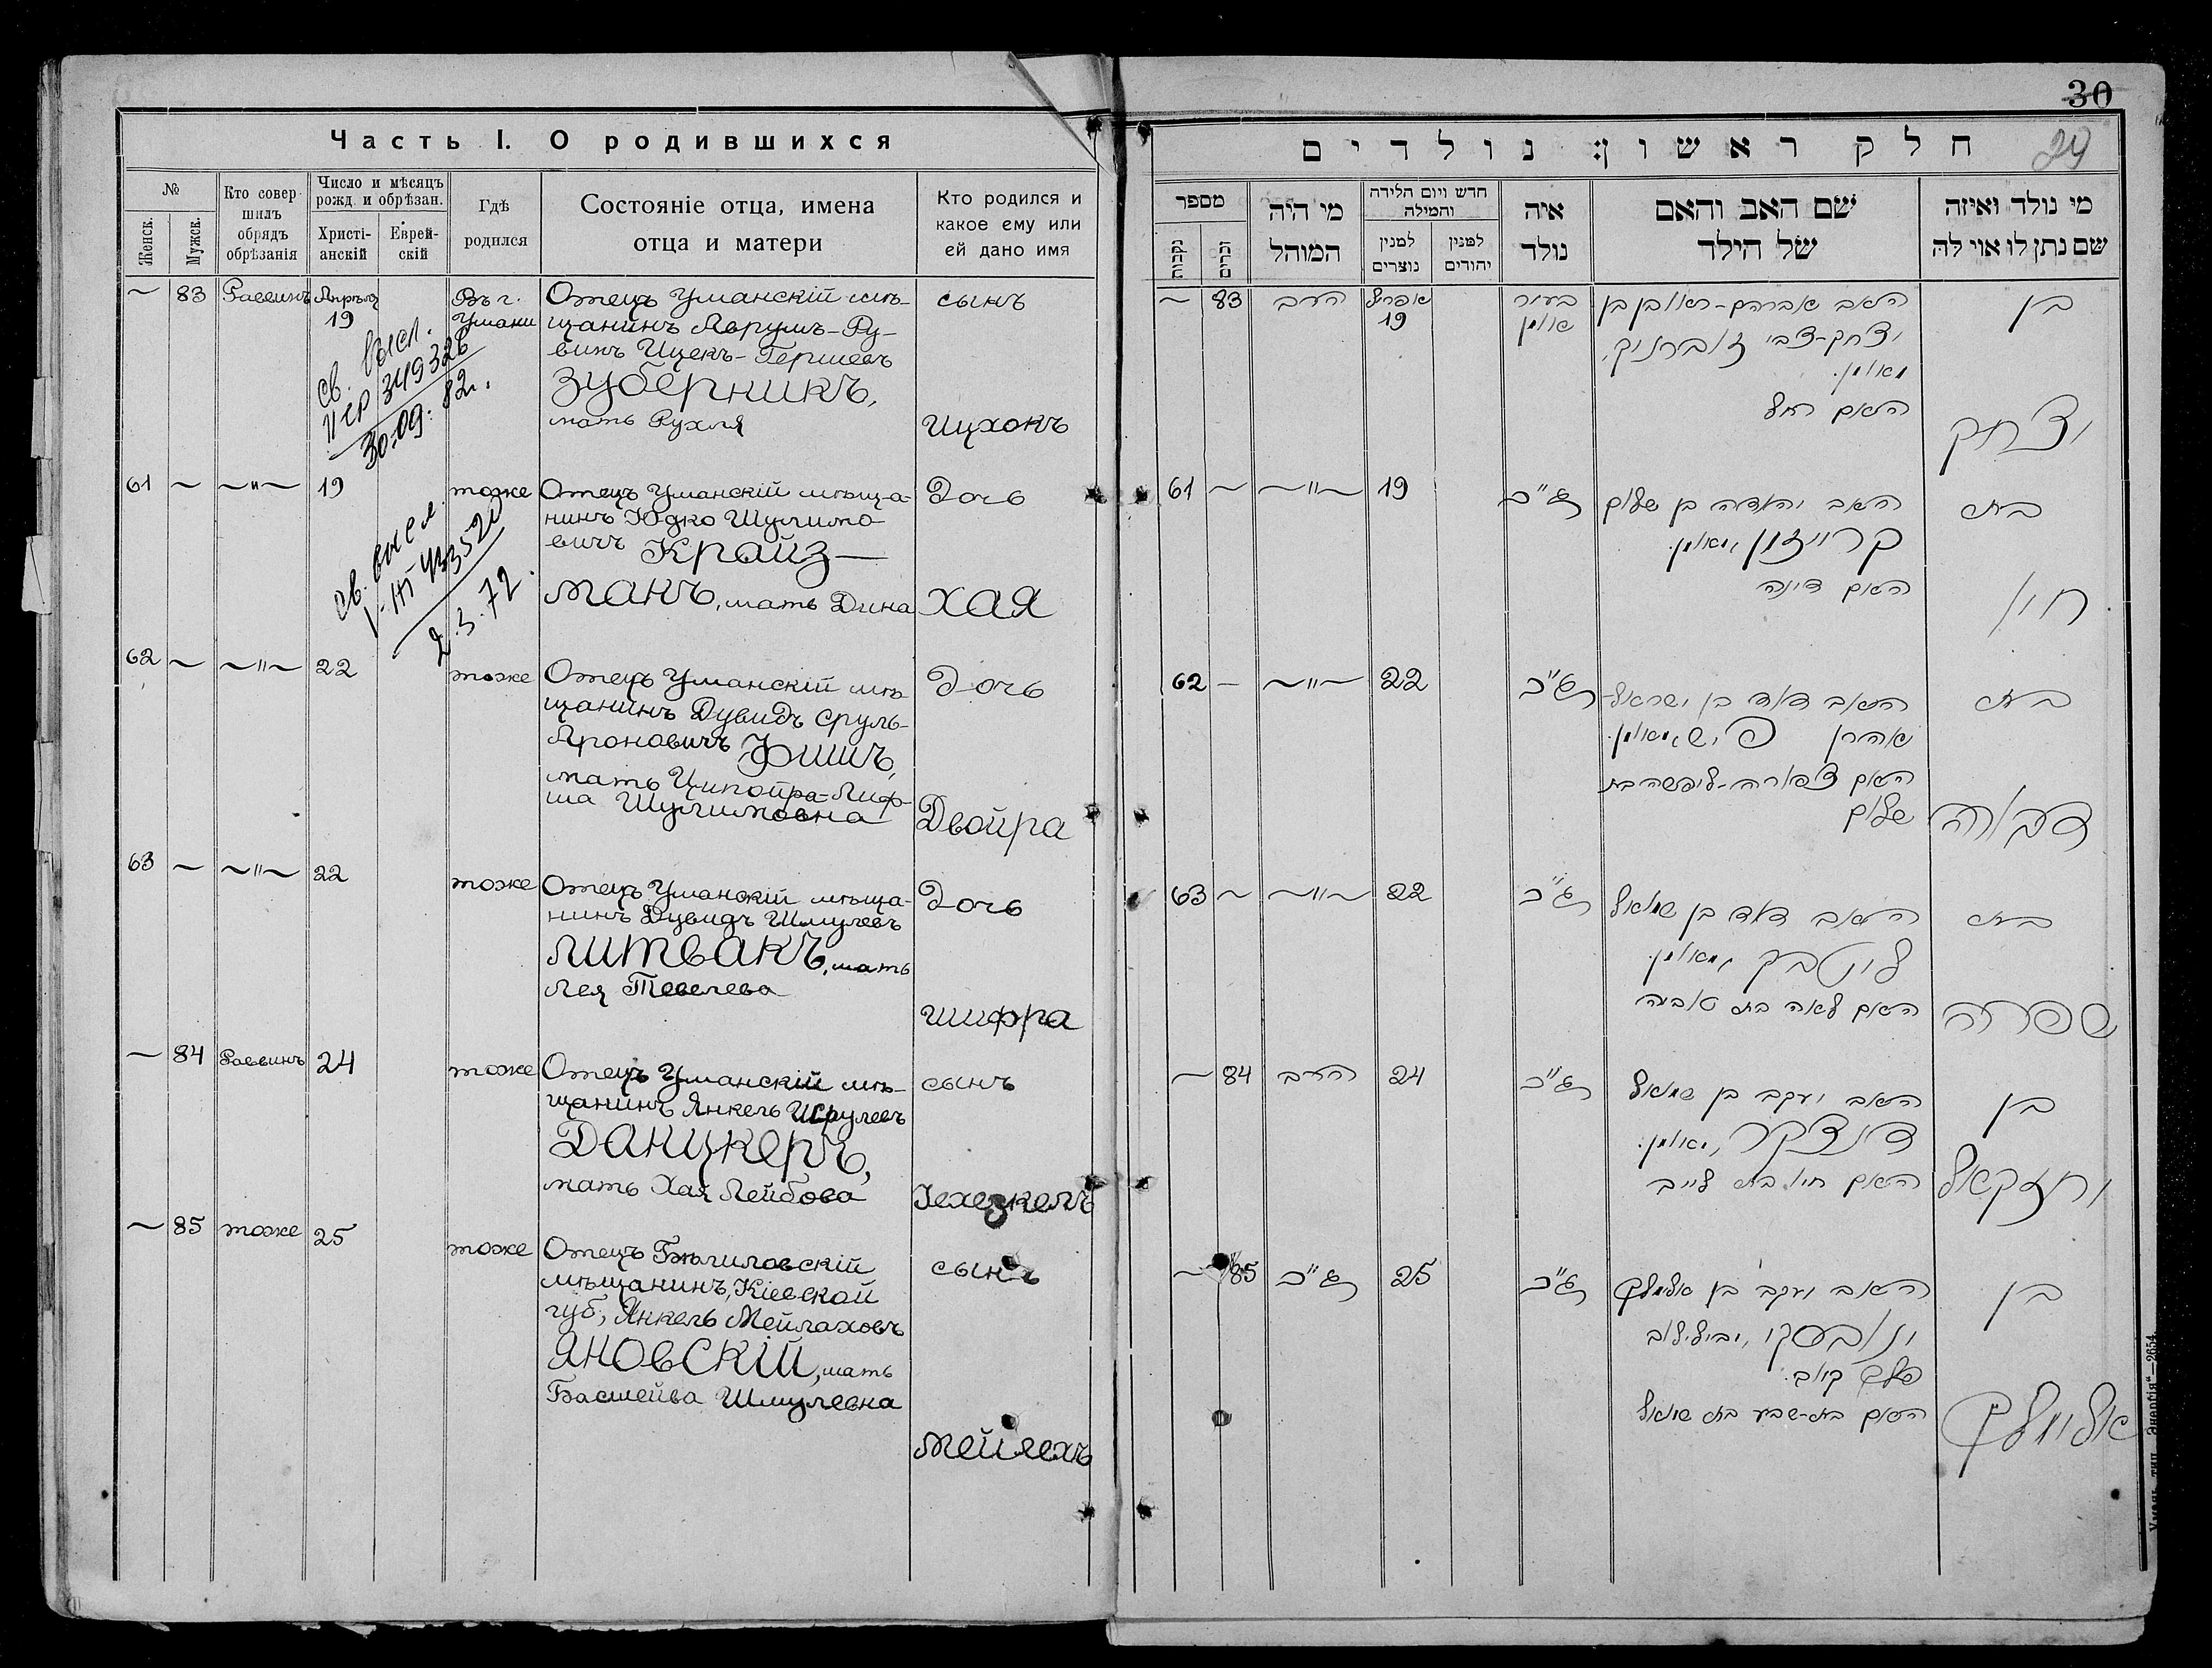 Часть I. О родившихся
№
Женск.
Мужск.
Кто совер-
шилъ
обрядъ
обрѣзанія
Число и мѣсяцъ
рожд. и обрѣзан.
Христі-
анскій
Еврей-
скій
Гдѣ
родился
Состояніе отца, имена
отца и матери
Кто родился и
какое ему или
ей дано имя
~ 83 Раввинъ Апрѣль
19
Въ г.
Умани
Отецъ Уманскій мѣ-
щанинъ Аврумъ-Ру-
винъ Ицекъ-Гершевъ
Зуберникъ,
мать Рухля
сынъ
Ицхокъ
св. высл.
349326
30.09.82г.
61 ~ ~"~ 19 тоже
Отецъ Уманскій мѣща-
нинъ Юдко Шулимо-
вичъ Крайз-
манъ, мать Дина
Дочь
Хая
св. высл.
433520
2.3.72.
62 ~ ~"~ 22 тоже
Отецъ Уманскій мѣ-
щанинъ Дувидъ Сруль-
Ароновичъ Фишъ,
мать Ципойра-Лиф-
ша Шулимовна
Дочь
Двойра
63 ~ ~"~ 22 тоже
Отецъ Уманскій мѣща-
нинъ Дувидъ Шмулевъ
Литвакъ, мать
Лея Тевелева
Дочь
Шифра
~ 84 Раввинъ 24 тоже
Отецъ Уманскій мѣ-
щанинъ Янкель Шмулевъ
Данцкеръ,
мать Хая Лейбова
сынъ
Іехезкелъ
~ 85 тоже 25 тоже
Отецъ Бѣлиловскій
мѣщанинъ, Кіевской
губ., Янкель Мейлаховъ
Яновскій, мать
Басшейва Шмулевна
сынъ
Мейлехъ
30
24
חלק ראשון: נולדים
מספר
נקבה
זכרים
מי היה
המוהל
חדש ויום הלידה
והמילה
למנין
נוצרים
למנין
יהודים
איה
נולד
שם האב והאם
של הילד
מי נולד ואיזה
שם נתן לו אוי לה
~ 83 הרב אפריל
19
בעיר
אומן
האב אברהם-ראובן בן
יצחק-צבי זוברניק,
מאומן.
האם רחל
בן
יצחק
61 ~ ~"~ 19 כנ"ל
האב יהודה בן שלום
קרייזמן, מאומן.
האם דינה
בת
חיה
62 — ~"~ 22 כנ"ל
האב דוד בן ישראל-
אהרן פיש, מאומן.
האם צפורה-ליפשה בת
שלום
בת
דבורה
63 ~ ~"~ 22 כנ"ל
האב דוד בן שמואל
ליטבק, מאומן.
האם לאה בת טוביה
בת
שפרה
~ 84 הרב 24 כנ"ל
האב יעקב בן שמואל
דנצקר, מאומן.
האם חיה בת לייב
בן
יחזקאל
~ 85 כנ"ל 25 כנ"ל
האב יעקב בן אלימלך
ינובסקי, מבילילוב
פלך קיוב.
האם בת-שבע בת שמואל
בן
אלימלך
Умань, тип. „Энергія"—2654.